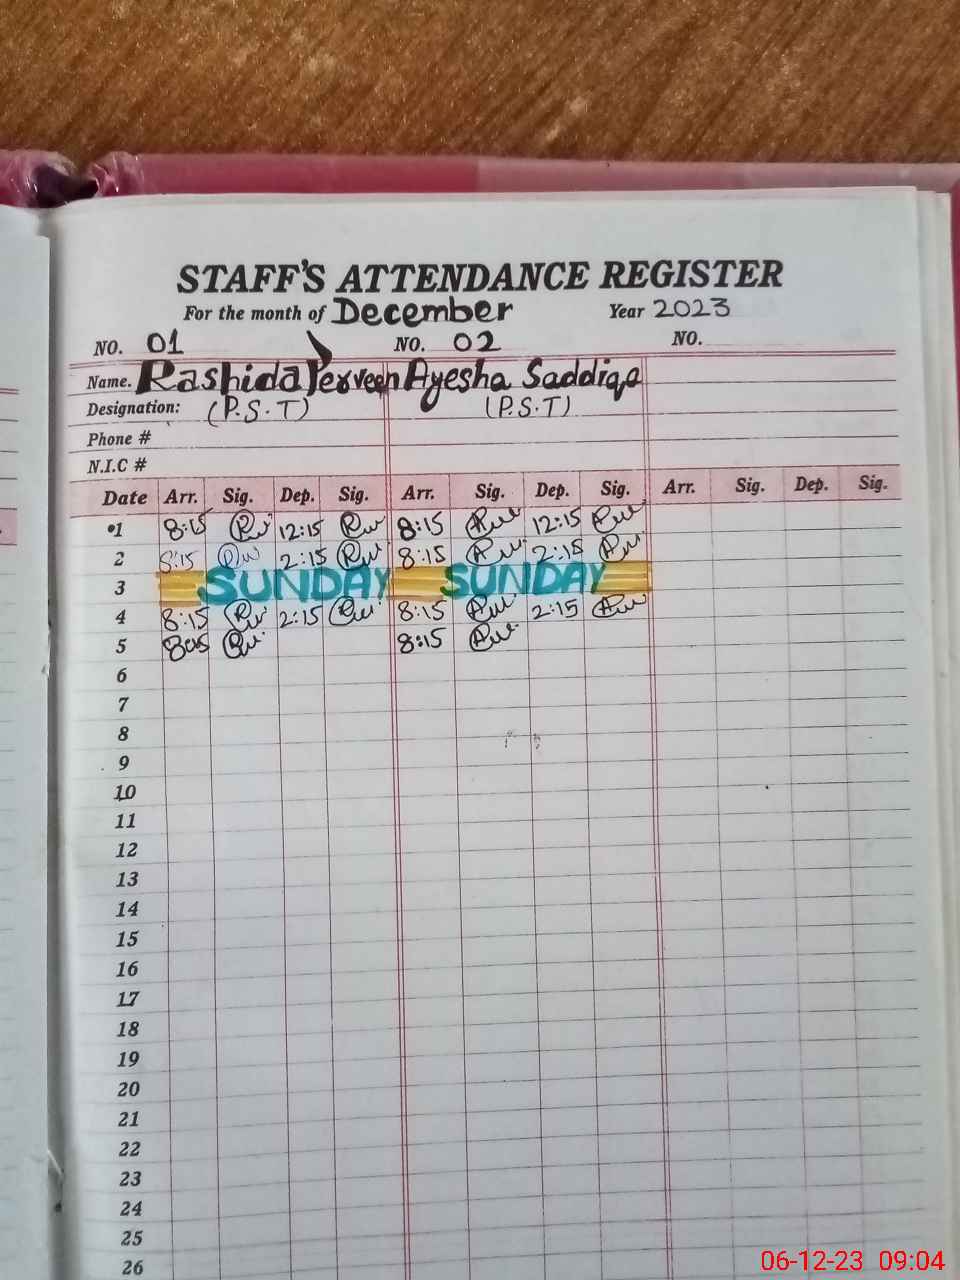 STAFF'S ATTENDANCE REGISTER
For the month of December Year 2023
NO. 01 NO. 02 NO.
Name. Rashida Perveen Ayesha Saddiqa
Designation: (P.S.T) (P.S.T)
Phone #
N.I.C #
Date Arr. Sig. Dep. Sig. Arr. Sig. Dep. Sig. Arr. Sig. Dep. Sig.
1 8:15 12:15 8:15 12:15
2 8:15 2:15 8:15 2:15
3 SUNDAY SUNDAY
4 8:15 2:15 8:15 2:15
5 8:15 8:15
6
7
8
9
10
11
12
13
14
15
16
17
18
19
20
21
22
23
24
25
26
06-12-23 09:04